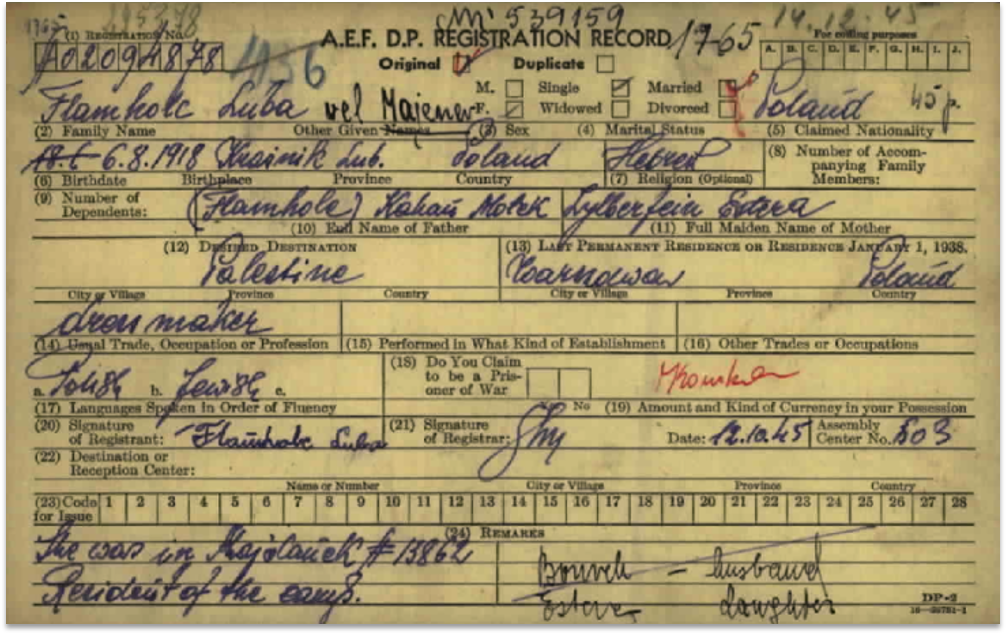 M'539159 14.12.45
(1) REGISTRATION No. A.E.F. D.P. REGISTRATION RECORD 17-65 For coding purposes
A02094878 436 Original ☑ Duplicate ☐ A. B. C. D. E. F. G. H. I. J.
M. ☐ Single ☑ Married ☑
Flamholc Luba vel Majener F. ☑ Widowed ☐ Divorced ☐ Poland 45 p.
(2) Family Name Other Given Names (3) Sex (4) Marital Status (5) Claimed Nationality
6.8.1918 Krasnik Lub. Poland Hebren (8) Number of Accompanying Family Members:
(6) Birthdate Birthplace Province Country (7) Religion (Optional)
(9) Number of Dependents: (Flamholc) Kahan Motek Zylberfein Estera
(10) Full Name of Father (11) Full Maiden Name of Mother
(12) DESIRED DESTINATION (13) LAST PERMANENT RESIDENCE OR RESIDENCE JANUARY 1, 1938.
Palestine Poland
City or Village Province Country City or Village Province Country
dress maker
(14) Usual Trade, Occupation or Profession (15) Performed in What Kind of Establishment (16) Other Trades or Occupations
a. Polish b. Jewish c. (18) Do You Claim to be a Prisoner of War
(17) Languages Spoken in Order of Fluency No (19) Amount and Kind of Currency in your Possession
(20) Signature of Registrant: Flamholc Luba (21) Signature of Registrar: Date: 12.10.45 Assembly Center No. 503
(22) Destination or Reception Center:
Name or Number City or Village Province Country
(23) Code for Issue 1 2 3 4 5 6 7 8 9 10 11 12 13 14 15 16 17 18 19 20 21 22 23 24 25 26 27 28
(24) REMARKS
She was in Majdaneck # 13862
Resident of the camp.
husband
Estera daughter
DP-2
16-39781-1